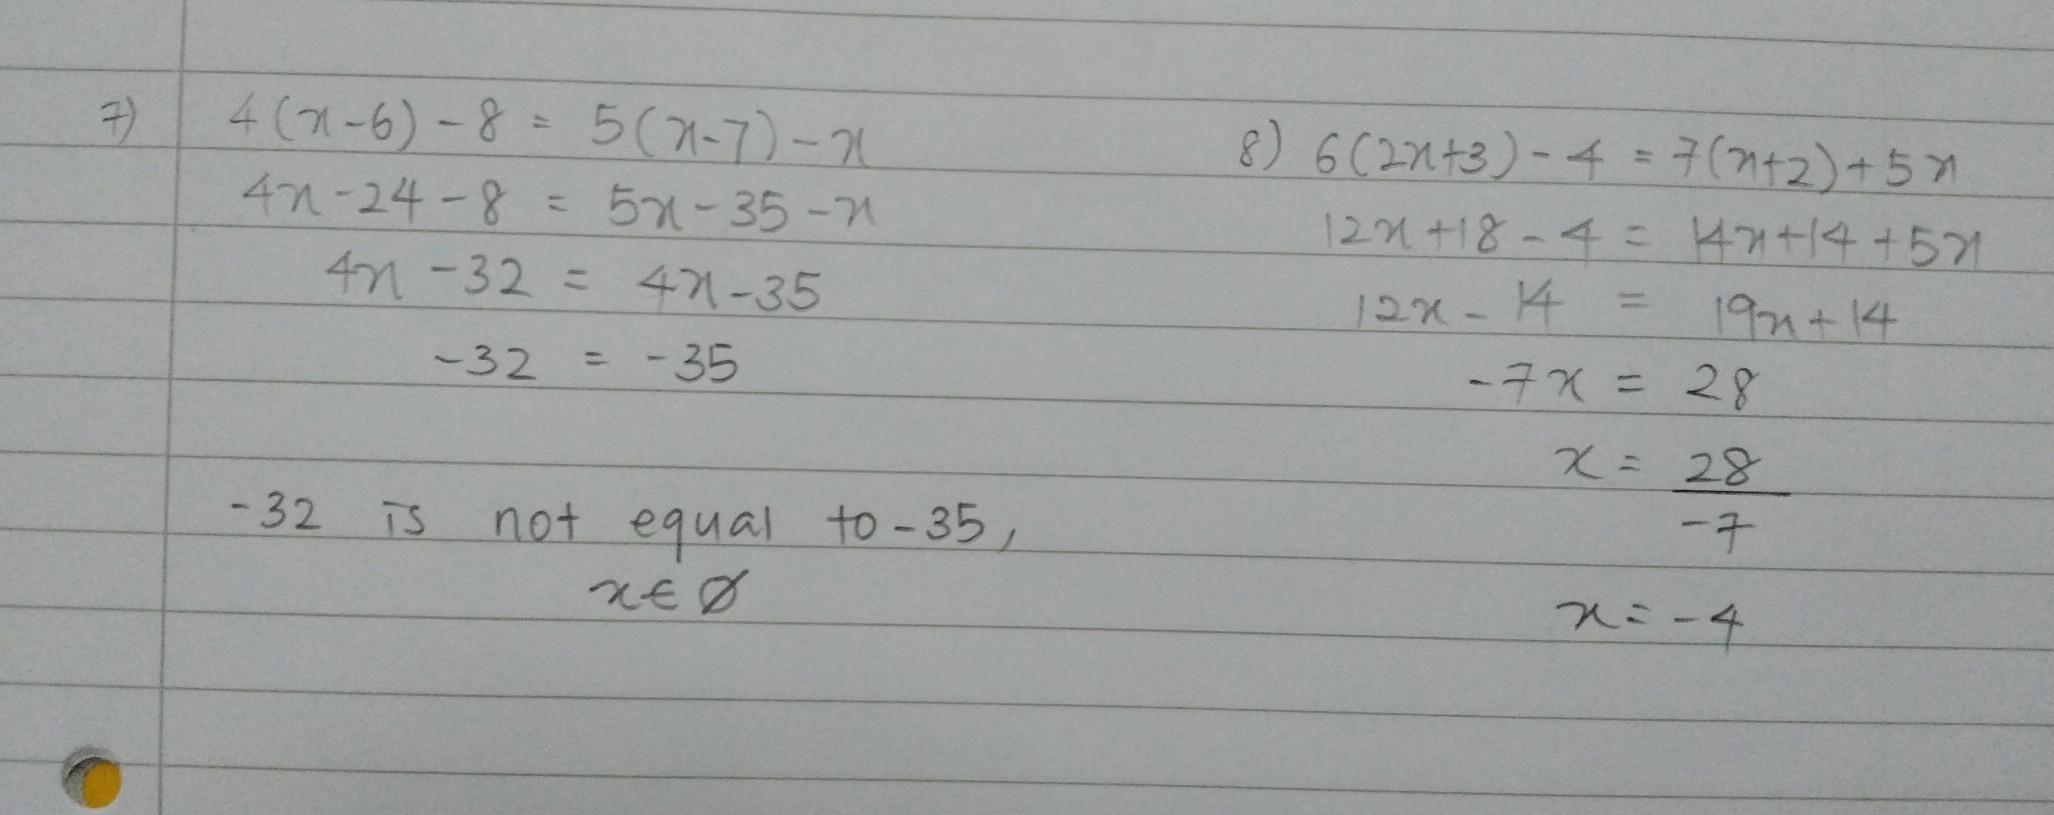 7) 4(x-6) - 8 = 5(x-7) - x
4x - 24 - 8 = 5x - 35 - x
4x - 32 = 4x - 35
-32 = -35
-32 is not equal to -35,
x ∈ Ø
8) 6(2x+3) - 4 = 7(x+2) + 5x
12x + 18 - 4 = 14x + 14 + 5x
12x - 14 = 19x + 14
-7x = 28
x = 28
-7
x = -4